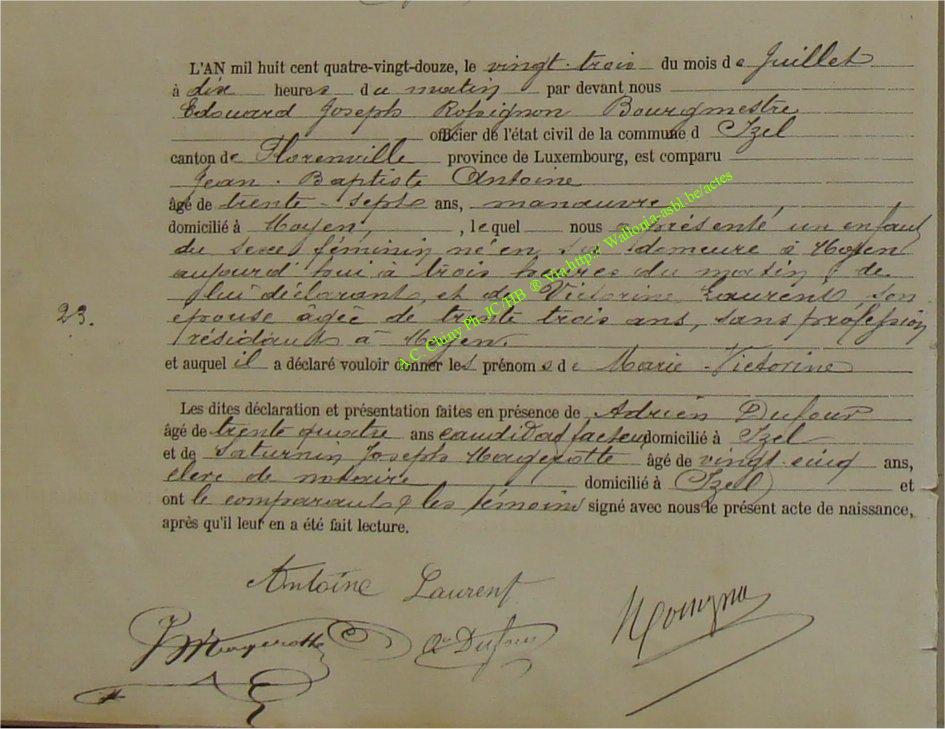 L'AN mil huit cent quatre-vingt-douze, le vingt-trois du mois de Juillet
à dix heures du matin par devant nous
Edouard Joseph Rossignon Bourgmestre
officier de l'état civil de la commune d Izel
canton de Florenville province de Luxembourg, est comparu
Jean-Baptiste Antoine
âgé de trente-sept ans, manœuvre
domicilié à Moyen, , lequel nous a présenté un enfant
du sexe féminin né en sa demeure à Moyen
aujourd'hui à trois heures du matin, de
lui déclarant, et de Victorine Laurent son
épouse agée de trente trois ans, sans profession
résidant à Moyen.
23.
et auquel il a déclaré vouloir donner les prénoms de Marie-Victorine
Les dites déclaration et présentation faites en présence de Adrien Dufour
âgé de trente quatre ans candidat facteur domicilié à Izel
et de Saturnin Joseph Magerotte âgé de vingt-cinq ans,
clerc de notaire domicilié à Izel et
ont le comparant & les témoins signé avec nous le présent acte de naissance,
après qu'il leur en a été fait lecture.
Antoine Laurent
Magerotte A. Dufour
A.C Chiny Ph JC/HB ® Via http: Wallonia-asbl.be/actes